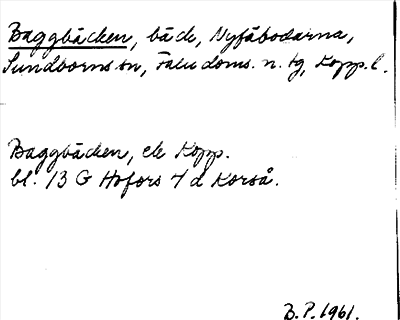 Baggbäcken, bäck, Nyfäbodarna,
Sundborns sn, Falu doms. n. tg, Kopp. l.
Baggbäcken, ek Kopp.
bl. 13 G Hofors 7 d Korså.
B.P. 1961.